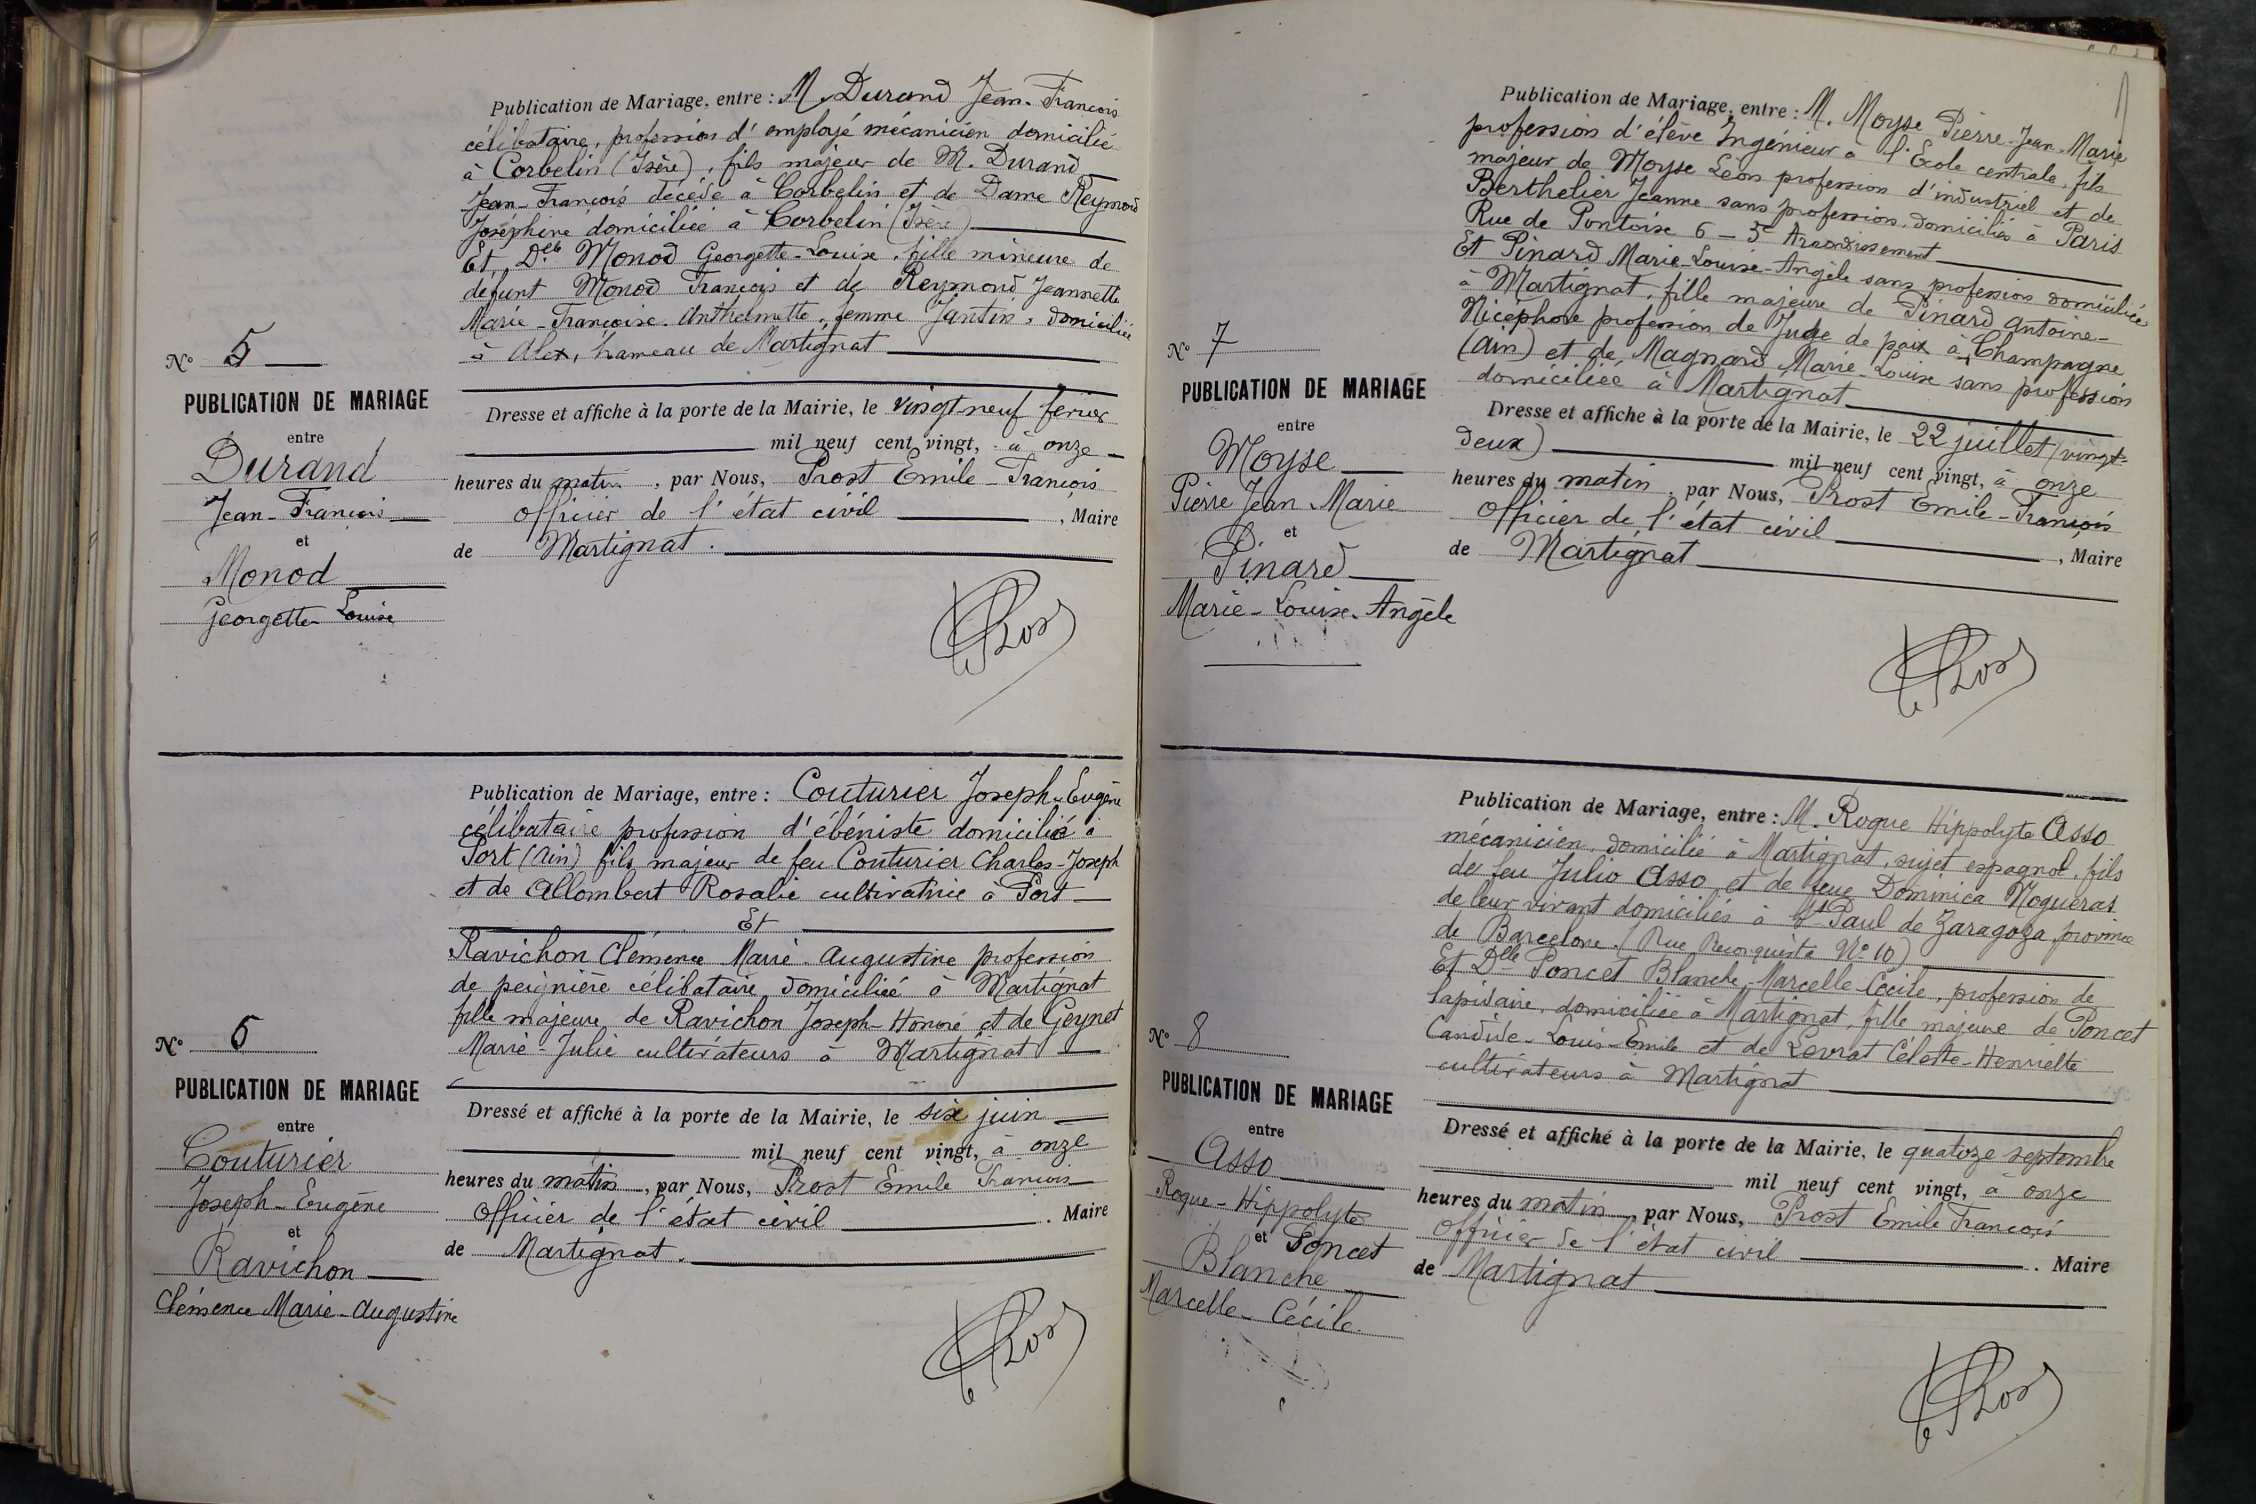 N° 5
PUBLICATION DE MARIAGE
entre
Durand
Jean-François
et
Monod
Georgette Louise
Publication de Mariage, entre : M. Durand Jean-François
célibataire, profession d'employé mécanicien domicilié
à Corbelin (Isère), fils majeur de M. Durand
Jean-François décédé à Corbelin et de Dame Reymond
Joséphine domiciliée à Corbelin (Isère)
Et Delle Monod Georgette-Louise, fille mineure de
défunt Monod François et de Reymond Jeannette
Marie-Françoise-Anthelmette, femme Jantin, domiciliée
à Alex, hameau de Martignat
Dresse et affiche à la porte de la Mairie, le vingt-neuf ferier
mil neuf cent vingt, à onze
heures du matin, par Nous, Prost Emile-François
officier de l'état civil, Maire
de Martignat.
Prost
N° 6
PUBLICATION DE MARIAGE
entre
Couturier
Joseph-Eugène
et
Ravichon
Clémence Marie-Augustine
Publication de Mariage, entre : Couturier Joseph-Eugène
célibataire profession d'ébéniste domicilié à
Port (Ain) fils majeur de feu Couturier Charles-Joseph
et de Allombert Rosalie cultivatrice à Port
Et
Ravichon Clémence Marie-Augustine profession
de peignière célibataire domiciliée à Martignat
fille majeure de Ravichon Joseph-Honoré et de Geynet
Marie-Julie cultivateurs à Martignat
Dressé et affiché à la porte de la Mairie, le six juin
mil neuf cent vingt, à onze
heures du matin, par Nous, Prost Emile François
officier de l'état civil. Maire
de Martignat.
Prost
N° 7
PUBLICATION DE MARIAGE
entre
Moyse
Pierre Jean Marie
et
Pinard
Marie-Louise-Angèle
Publication de Mariage, entre : M. Moyse Pierre-Jean-Marie
profession d'élève Ingénieur à l'Ecole centrale, fils
majeur de Moyse Léon profession d'industriel et de
Berthelier Jeanne sans profession, domiciliés à Paris
Rue de Pontoise 6 - 5e Arrondissement
Et Pinard Marie-Louise-Angèle sans profession domiciliée
à Martignat, fille majeure de Pinard Antoine-
Nicéphore profession de Juge de paix à Champagne
(Ain) et de Magnard Marie-Louise sans profession
domiciliée à Martignat
Dresse et affiche à la porte de la Mairie, le 22 juillet (vingt-
deux) mil neuf cent vingt, à onze
heures du matin, par Nous, Prost Emile-François
officier de l'état civil, Maire
de Martignat
Prost
N° 8
PUBLICATION DE MARIAGE
entre
Asso
Roque-Hippolyte
et Poncet
Blanche
Marcelle-Cécile.
Publication de Mariage, entre : M. Roque Hippolyte Asso
mécanicien, domicilié à Martignat, sujet espagnol, fils
de feu Julio Asso et de feue Dominica Nogueras
de leur vivant domiciliés à St Paul de Zaragoza province
de Barcelone. (Rue Reconquista N° 10)
Et Delle Poncet Blanche-Marcelle-Cécile, profession de
lapidaire, domiciliée à Martignat, fille majeure de Poncet
Candide-Louis-Emile et de Levrat Céleste-Henriette
cultivateurs à Martignat
Dressé et affiché à la porte de la Mairie, le quatoze septembre
mil neuf cent vingt, à onze
heures du matin, par Nous, Prost Emile François
officier de l'état civil. Maire
de Martignat
Prost